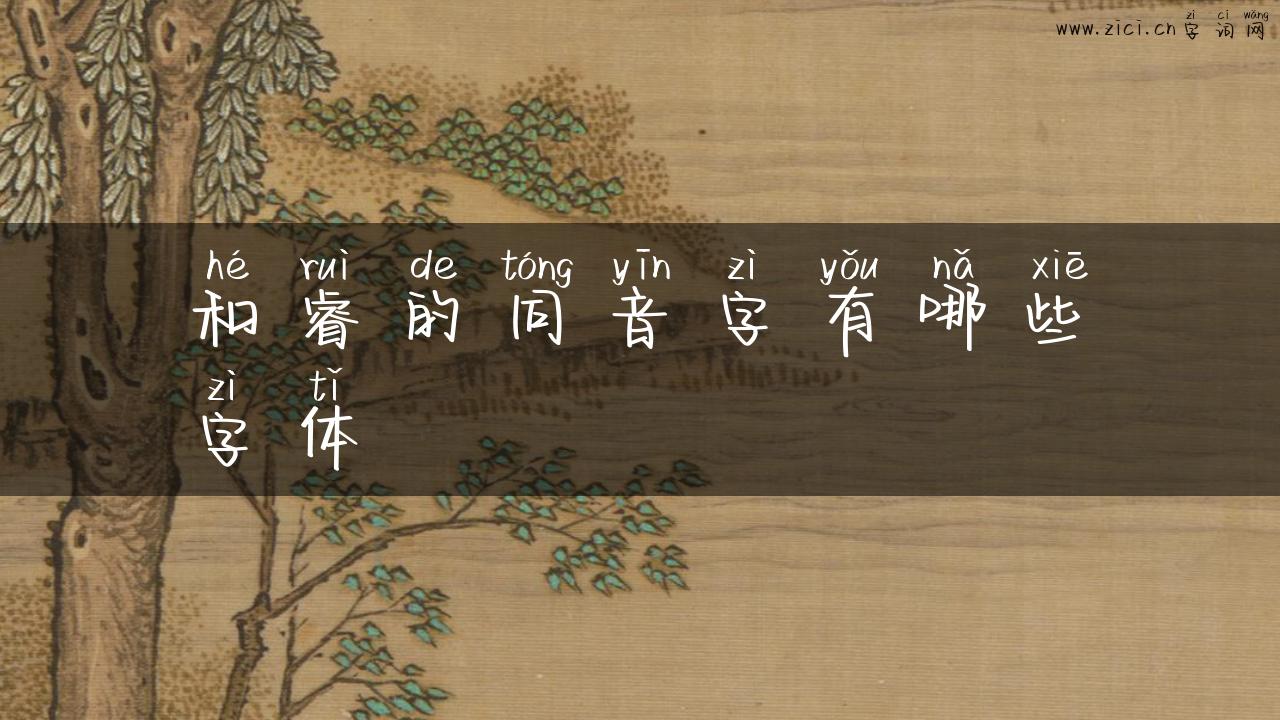 zì cí wǎng
www.zici.cn 字词网
hé ruì de tóng yīn zì yǒu nǎ xiē
和睿的同音字有哪些
zì tǐ
字体